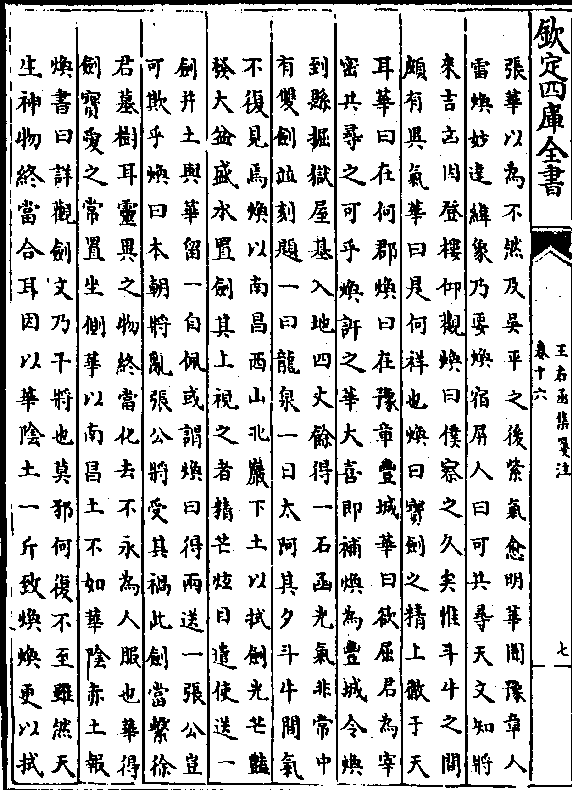 欽定四庫全書
王右丞集箋注
卷十六
七
張華以為不然及吳平之後紫氣愈明華聞豫章人
雷煥妙達緯象乃要煥宿屏人曰可共尋天文知將
來吉凶因登樓仰觀煥曰僕察之久矣惟斗牛之間
頗有異氣華曰是何祥也煥曰寶劍之精上徹于天
耳華曰在何郡煥曰在豫章豐城華曰欲屈君為宰
密共尋之可乎煥許之華大喜即補煥為豐城令煥
到縣掘獄屋基入地四丈餘得一石函光氣非常中
有雙劍並刻題一曰龍泉一曰太阿其夕斗牛間氣
不復見焉煥以南昌西山北巖下土以拭劍光芒豔
發大盆盛水置劍其上視之者精芒炫目遣使送一
劍并土與華留一自佩或謂煥曰得兩送一張公豈
可欺乎煥曰本朝將亂張公將受其禍此劍當繫徐
君墓樹耳靈異之物終當化去不永為人服也華得
劍寶愛之常置坐側華以南昌土不如華陰赤土報
煥書曰詳觀劍文乃干將也莫邪何復不至雖然天
生神物終當合耳因以華陰土一斤致煥煥更以拭